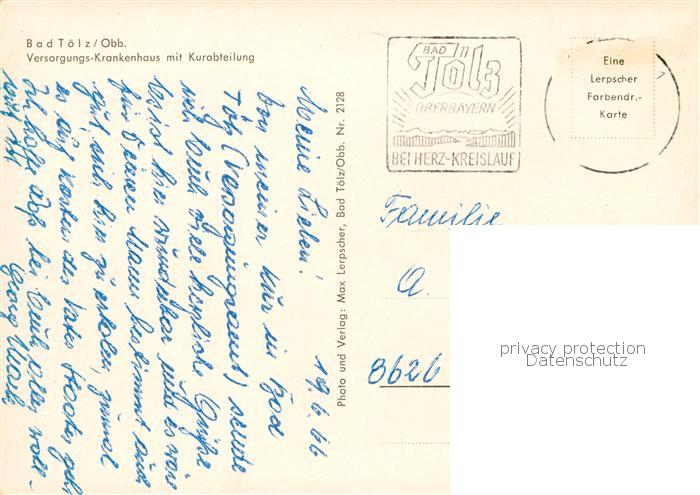 Bad Tölz/Obb.
Versorgungs-Krankenhaus mit Kurabteilung
BAD
Tölz
OBERBAYERN
BEI HERZ-KREISLAUF
Eine
Lerpscher
Farbendr.-
Karte
Photo und Verlag: Max Lerpscher, Bad Tölz/Obb. Nr. 2128
19.6.66
Meine Lieben!
Von meiner Kur in Bad
Tölz (Versorgungsamt) sende
ich Euch viele herzliche Grüße
Es ist hier wunderbar und es wäre
für Deinen Mann bestimmt auch
gut, sich hier zu erholen, zumal
es auf Kosten des Vater Staates geht
Ich hoffe daß bei Euch alles wohl-
auf ist
Georg
Familie
A.
8626
privacy protection
Datenschutz